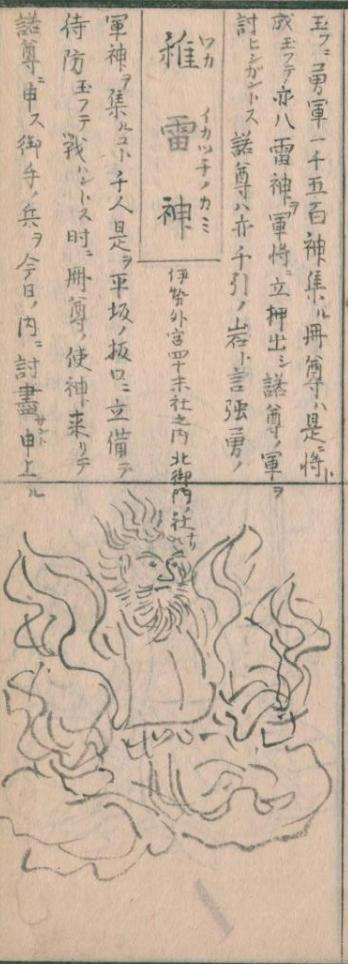 玉フニ勇軍一千五百神集ル冊尊ハ是ニ将ト
成玉フテ亦八雷神ヲ軍将ニ立押出シ諾尊ノ軍ヲ
討ヒシガントス諾尊ハ亦千引ノ岩ト言強勇ノ
稚雷神
ワカイカツチノカミ
伊勢外宮四十末社之内北御門ノ社ナリ
軍神ヲ集ルコト千人是ヲ平坂ノ坂口ニ立備テ
待防玉フテ戦ハントス時ニ冊尊ノ使神来リテ
諾尊ニ申ス御手ノ兵ヲ今日ノ内ニ討盡サント申上ル